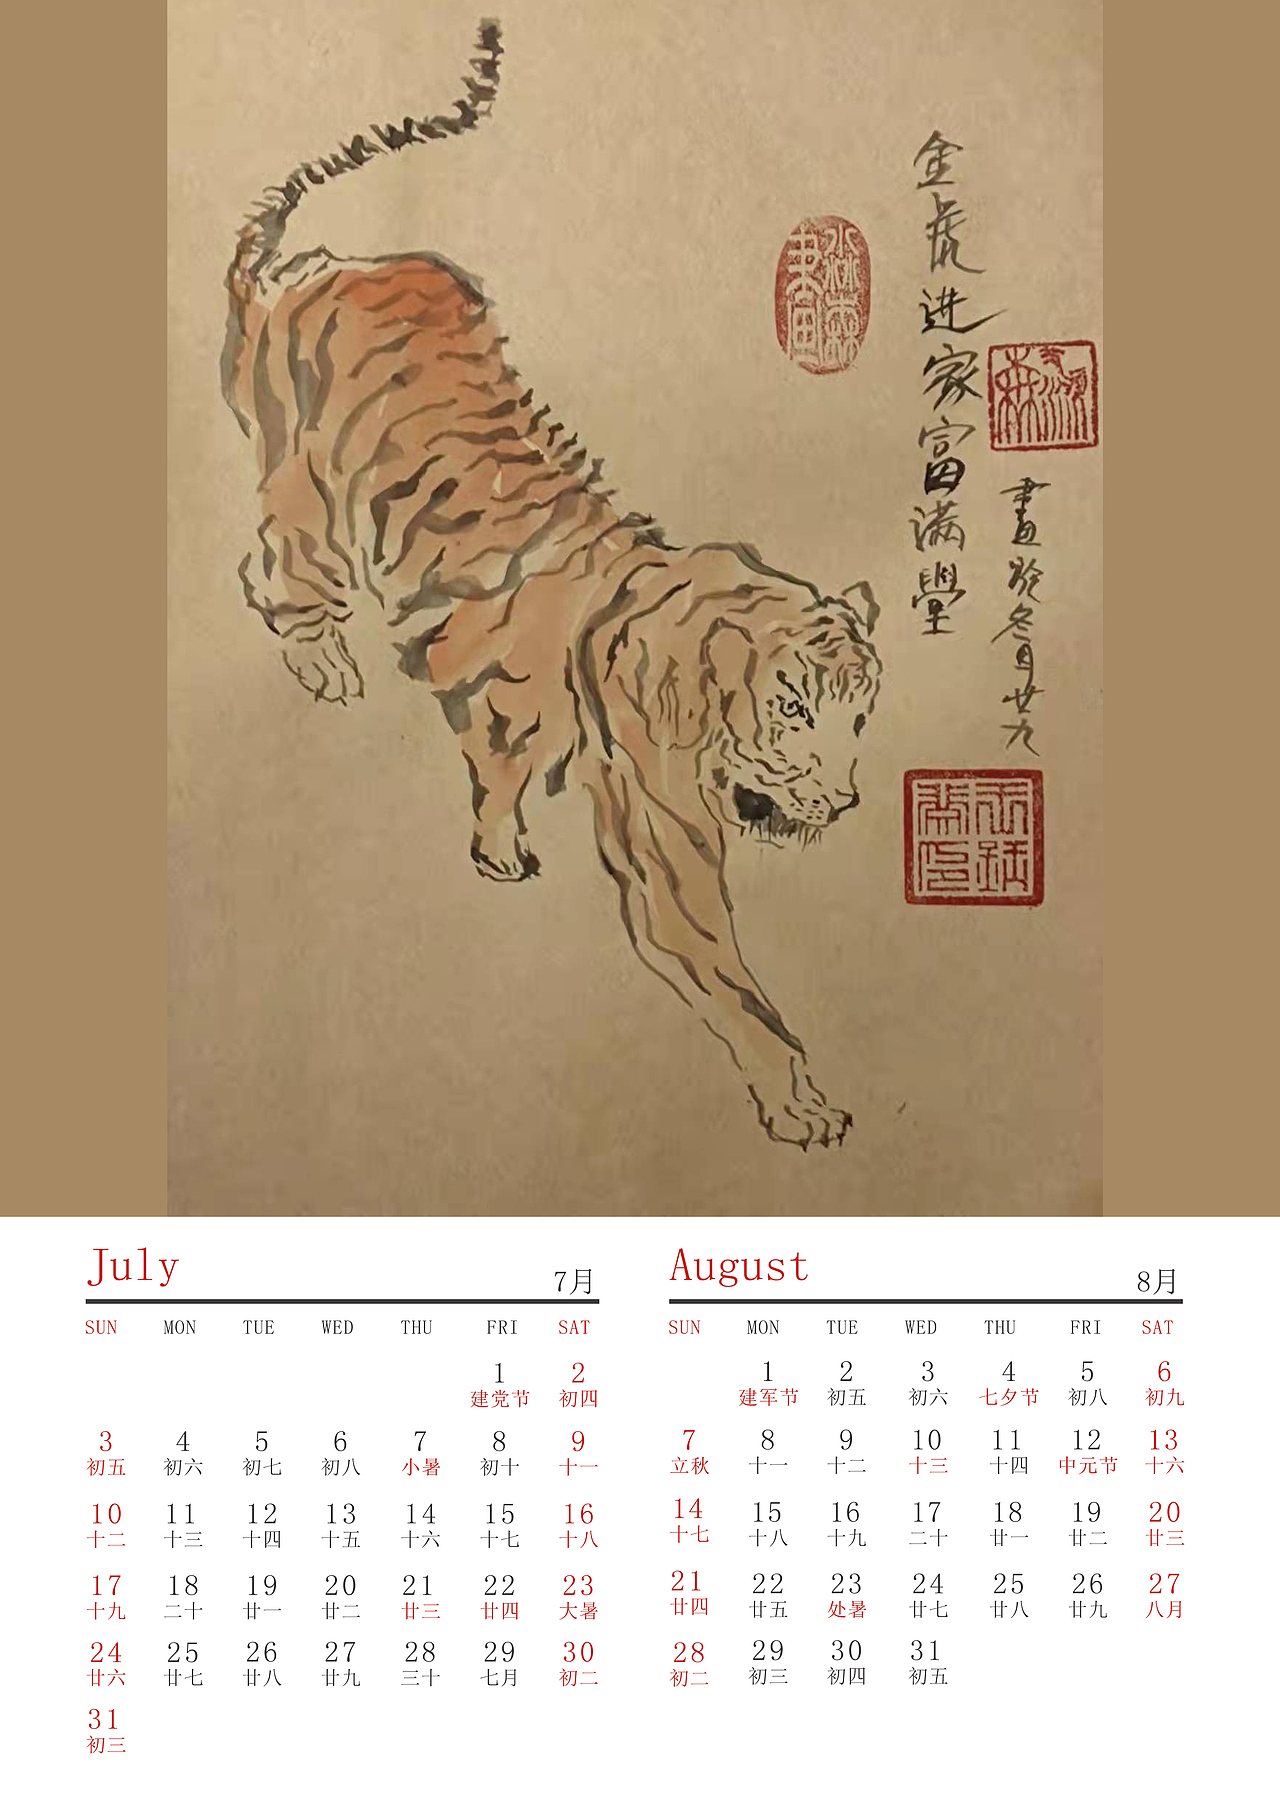 金虎进家富满堂
書於冬月廿九
July
7月
SUN MON TUE WED THU FRI SAT
1 2
建党节 初四
3 4 5 6 7 8 9
初五 初六 初七 初八 小暑 初十 十一
10 11 12 13 14 15 16
十二 十三 十四 十五 十六 十七 十八
17 18 19 20 21 22 23
十九 二十 廿一 廿二 廿三 廿四 大暑
24 25 26 27 28 29 30
廿六 廿七 廿八 廿九 三十 七月 初二
31
初三
August
8月
SUN MON TUE WED THU FRI SAT
1 2 3 4 5 6
建军节 初五 初六 七夕节 初八 初九
7 8 9 10 11 12 13
立秋 十一 十二 十三 十四 中元节 十六
14 15 16 17 18 19 20
十七 十八 十九 二十 廿一 廿二 廿三
21 22 23 24 25 26 27
廿四 廿五 处暑 廿七 廿八 廿九 八月
28 29 30 31
初二 初三 初四 初五